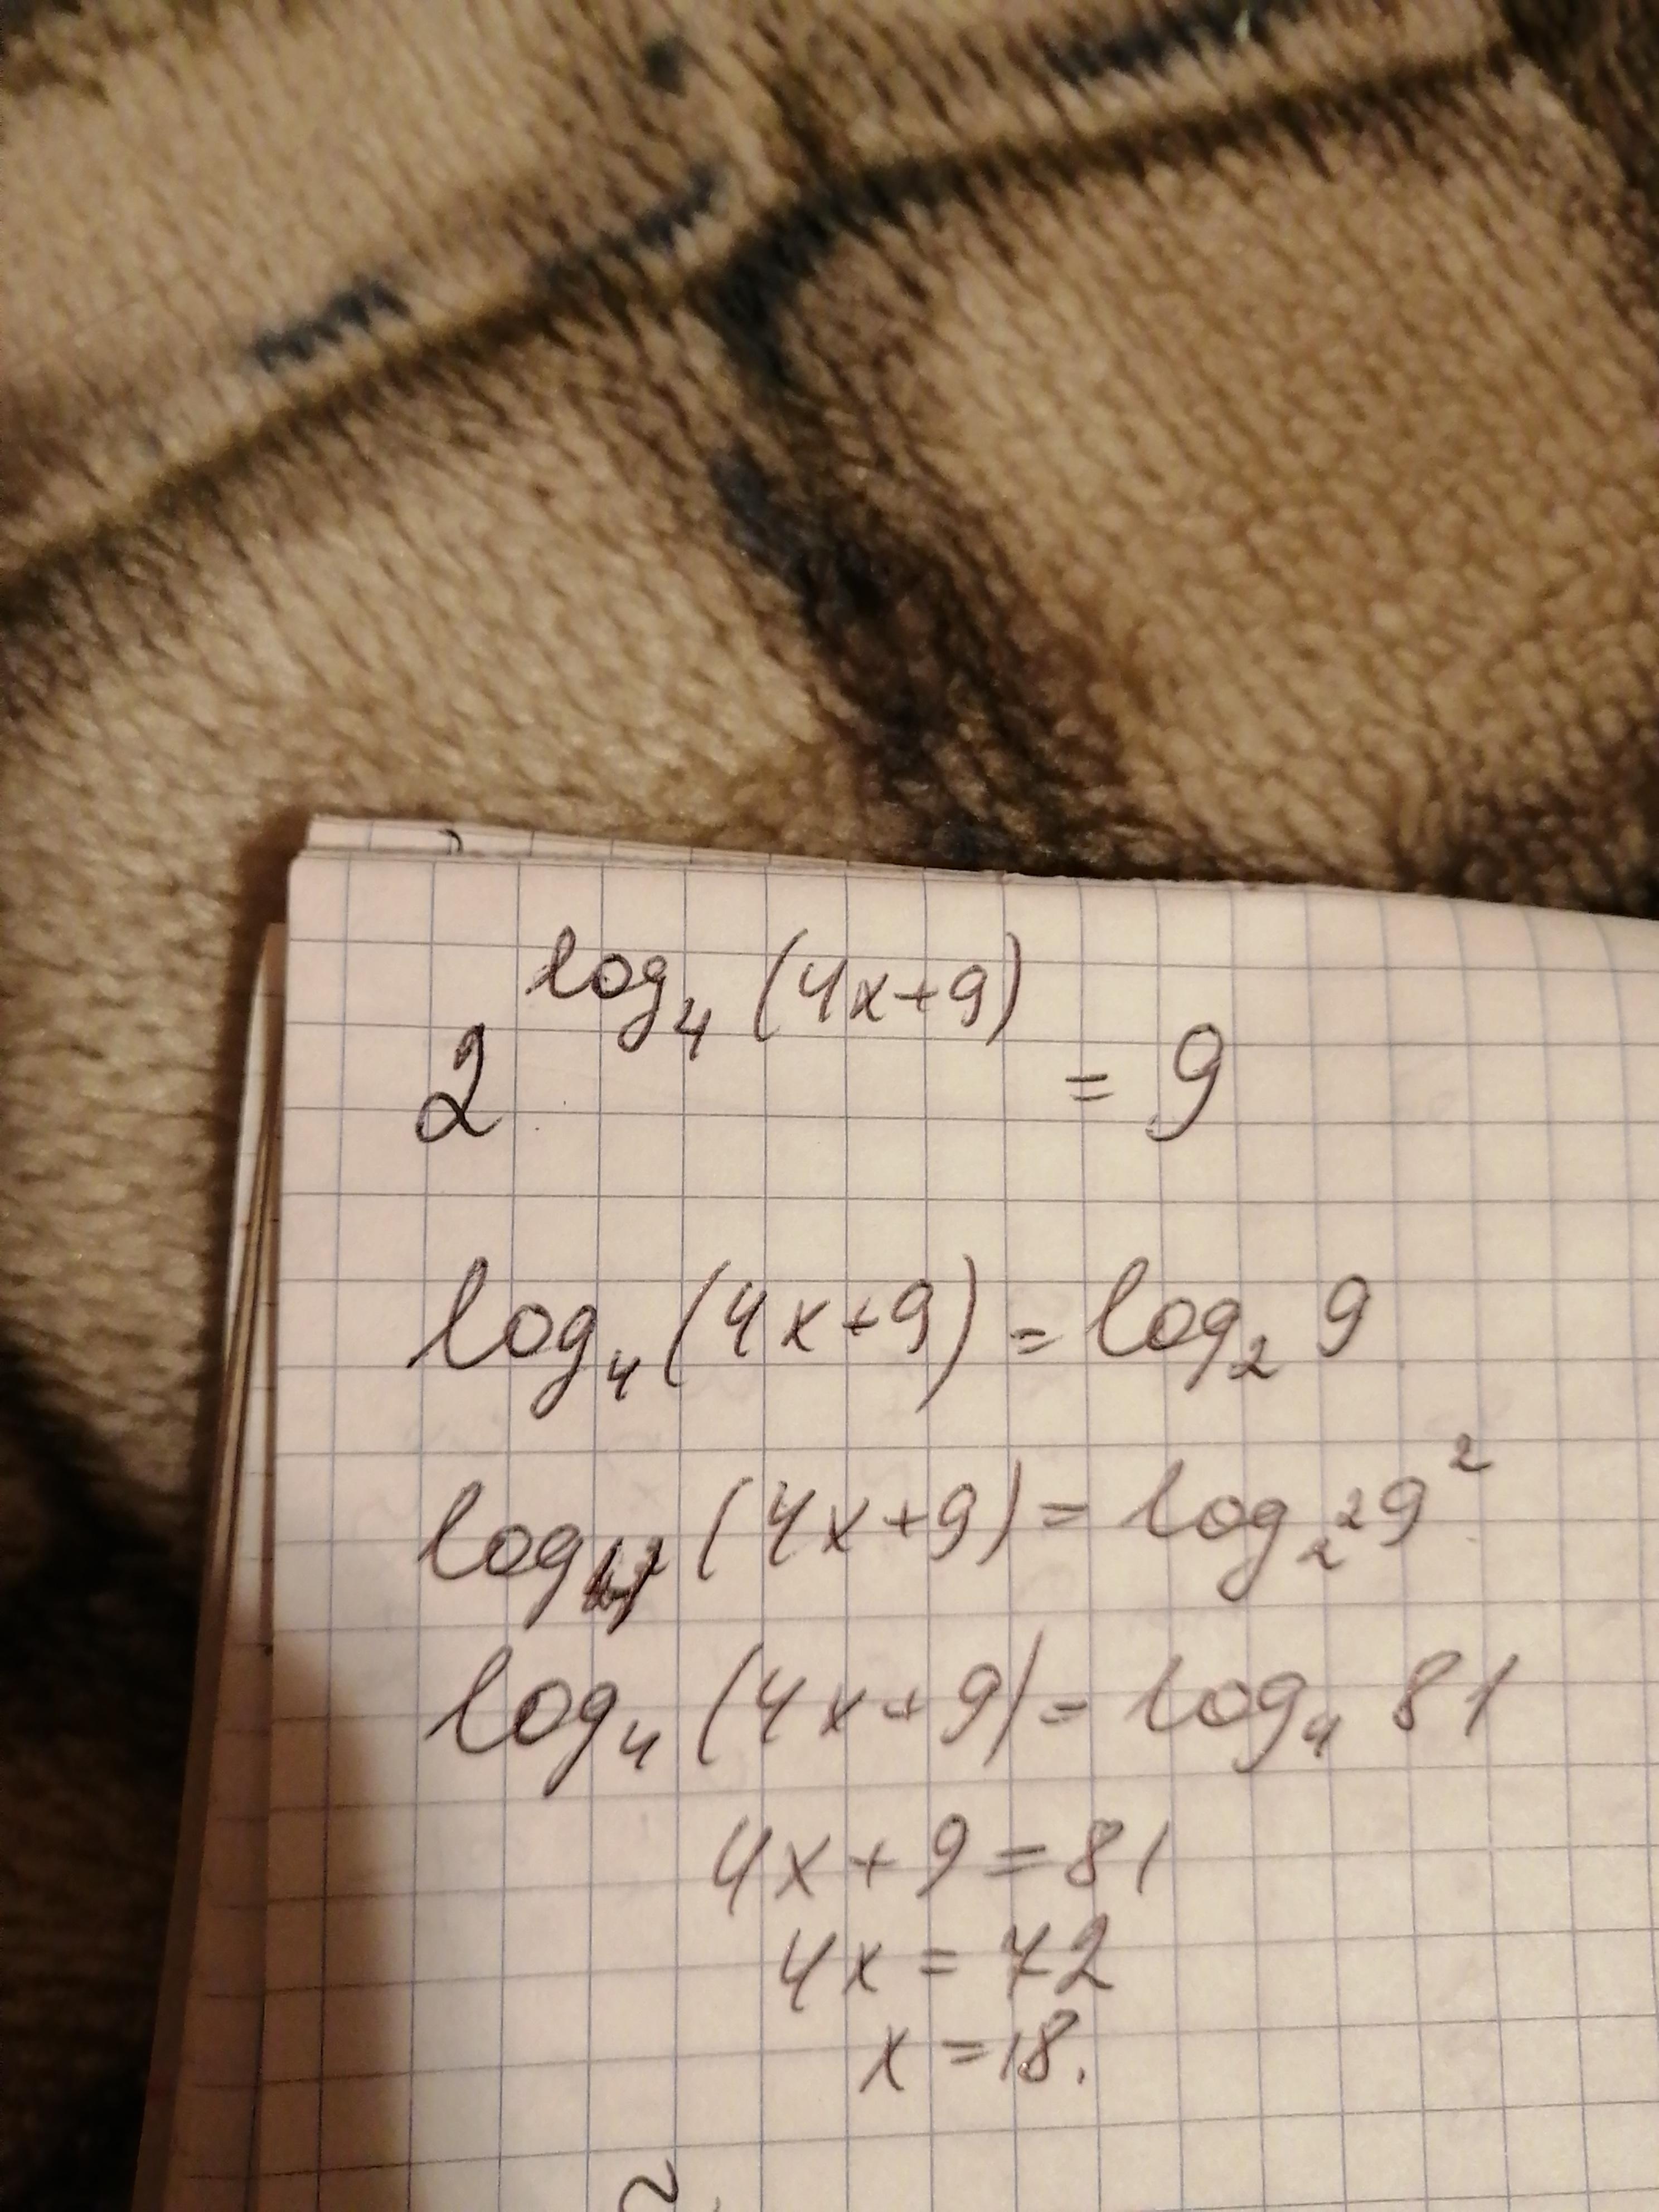 2^{log_4 (4x+9)} = 9
log_4 (4x+9) = log_2 9
log (4x+9) = log_{2^2} 9^2
log_4 (4x+9) = log_4 81
4x + 9 = 81
4x = 72
x = 18.